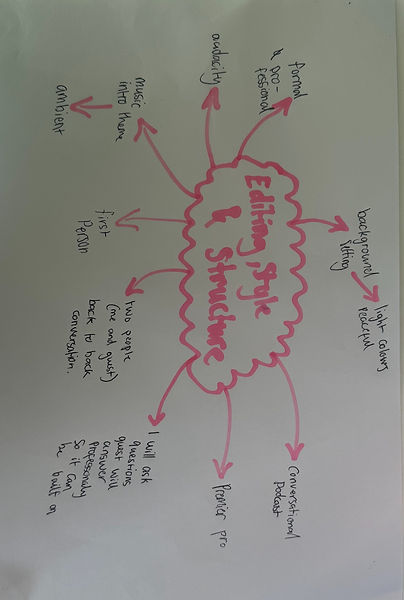 Editing, Style
& Structure
formal
& pro-
fessional
audacity
music
intro theme
ambient
first
Person
two people
(me and guest)
back to back
conversation.
I will ask
questions
guest will
answer
professionaly
So it can
be built on
Premier pro
Conversational
Podcast
background
setting
light colours
peaceful